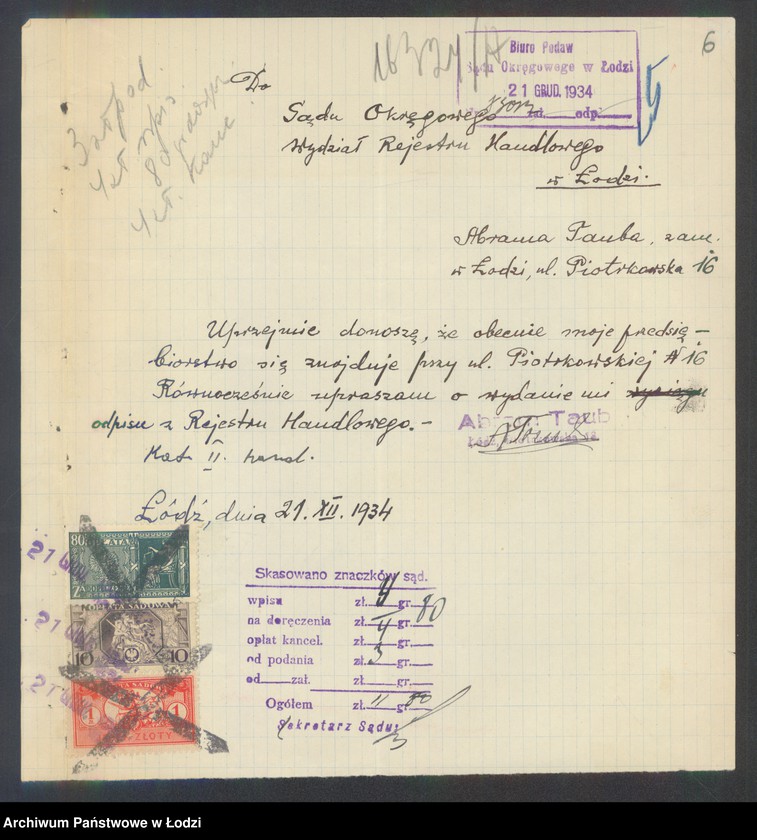 6
16324/A
Biuro Podaw
Sądu Okręgowego w Łodzi
21 GRUD. 1934
zał. odp.
3 zł pod.
4 zł. wpis
80 gr
4 zł. kanc.
Do
Sądu Okręgowego
Wydział Rejestru Handlowego
w Łodzi.
Abrama Tauba, zam.
w Łodzi, ul. Piotrkowska 16
Uprzejmie donoszę, że obecnie moje przedsię-
biorstwo się znajduje przy ul. Piotrkowskiej № 16
Równocześnie upraszam o wydanie mi
odpisu z Rejestru Handlowego.-
Abram Taub
Kat II. hand.
Łódź, dnia 21. XII. 1934
21 GRUD
80
OPŁATA SĄDOWA
10 10
21 GRUD
1 1
ZŁOTY
Skasowano znaczków sąd.
wpisu zł. 4 gr. 80
na doręczenia zł. gr.
opłat kancel. zł. 4 gr.
od podania zł. 3 gr.
od zał. zł. gr.
Ogółem zł. 11 gr. 80
Sekretarz Sądu:
Archiwum Państwowe w Łodzi